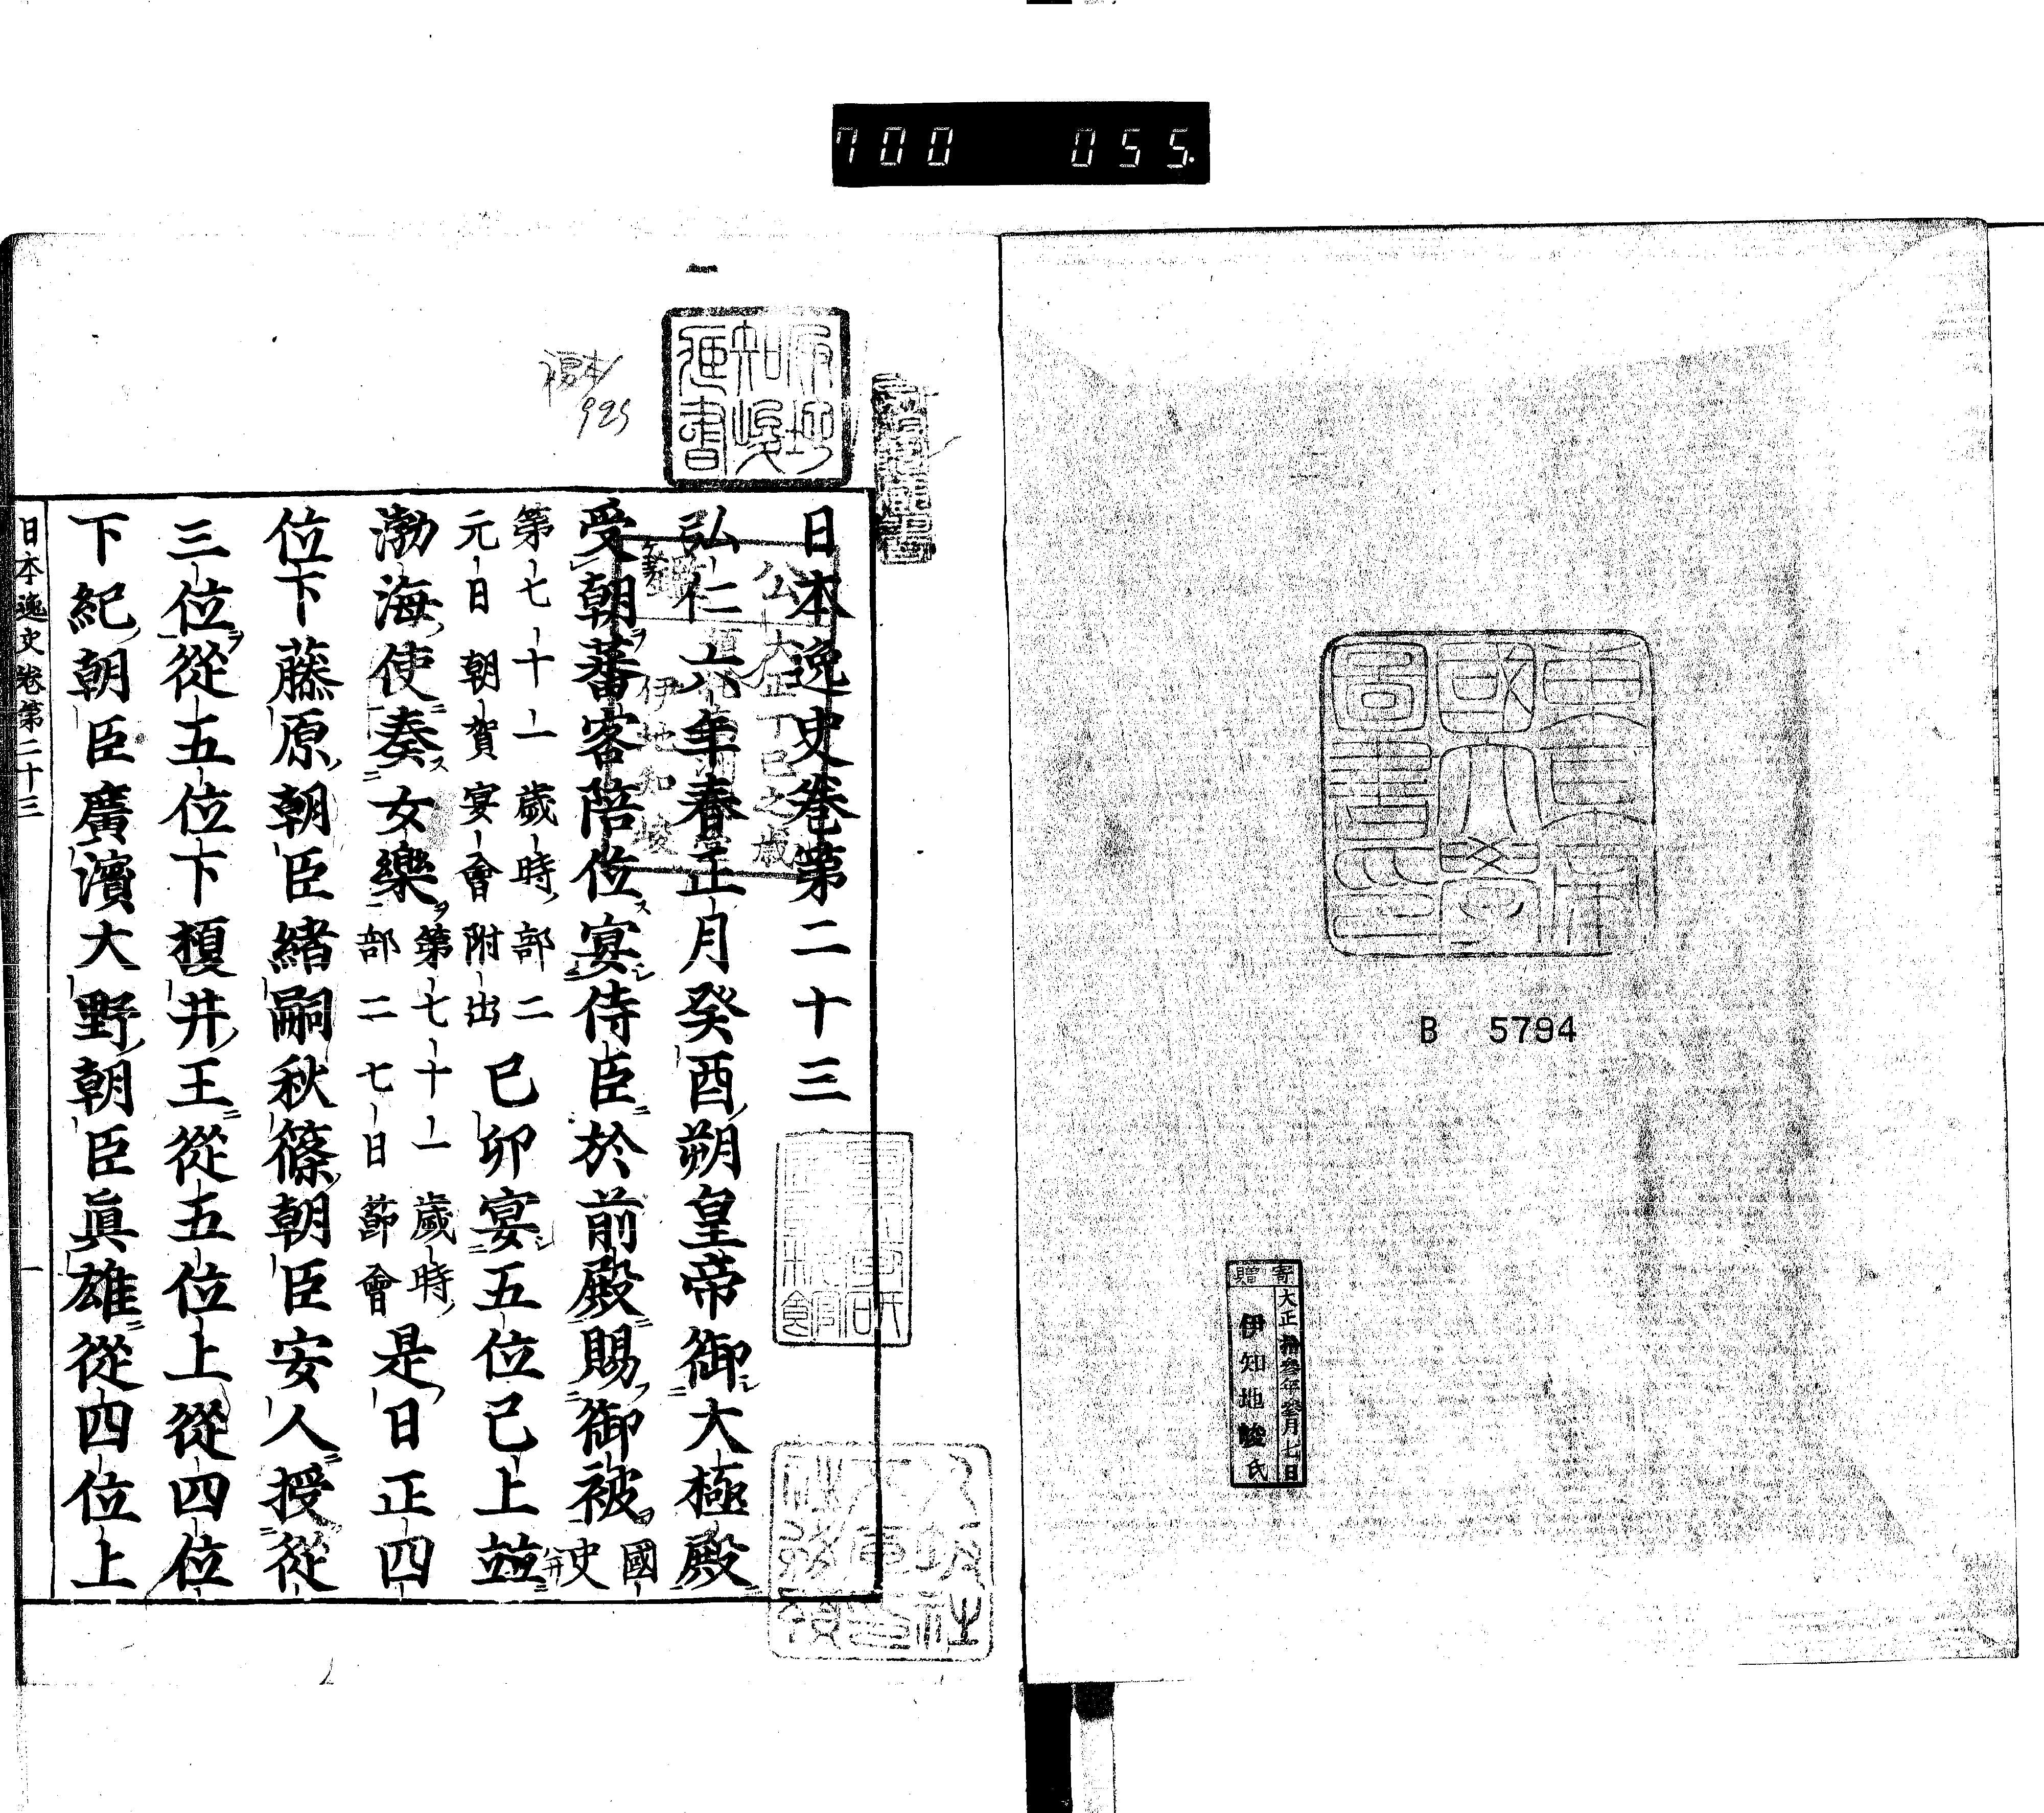 700 055.
東京帝
國大學
圖書印
B 5794
寄贈
大正拾參年參月七日
伊知地峻氏
複本
925
日本逸史卷第二十三
弘仁六年春正月癸酉朔皇帝御大極殿
受朝蕃客陪位宴侍臣於前殿賜御被國史
第七十一歲時部二
元日朝賀宴會附出
己卯宴五位已上竝
渤海使奏女樂
第七十一歲時
部二七日節會
是日正四
位下藤原朝臣緖嗣秋篠朝臣安人授從
三位從五位下榎井王從五位上從四位
下紀朝臣廣濱大野朝臣眞雄從四位上
日本逸史卷第二十三
一